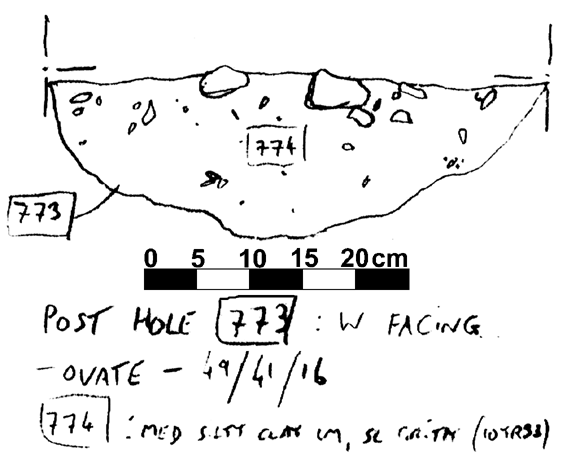 774
773
0 5 10 15 20 cm
POST HOLE 773 : W FACING
- OVATE - 49/41/16
774 : MED SILTY CLAY LM, SL GRITTY (10YR33)